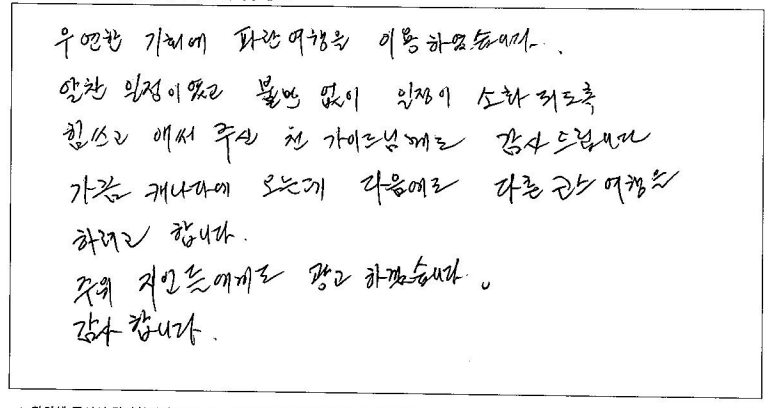 우연한 기회에 파란여행을 이용하였습니다.
알찬 일정이였고 불만 없이 일정이 소화되도록
힘쓰고 애써 주신 천 가이드님께도 감사드립니다
가끔 캐나다에 오는데 다음에도 다른 코스 여행을
하려고 합니다.
주위 지인들에게도 광고 하겠습니다.
감사합니다.